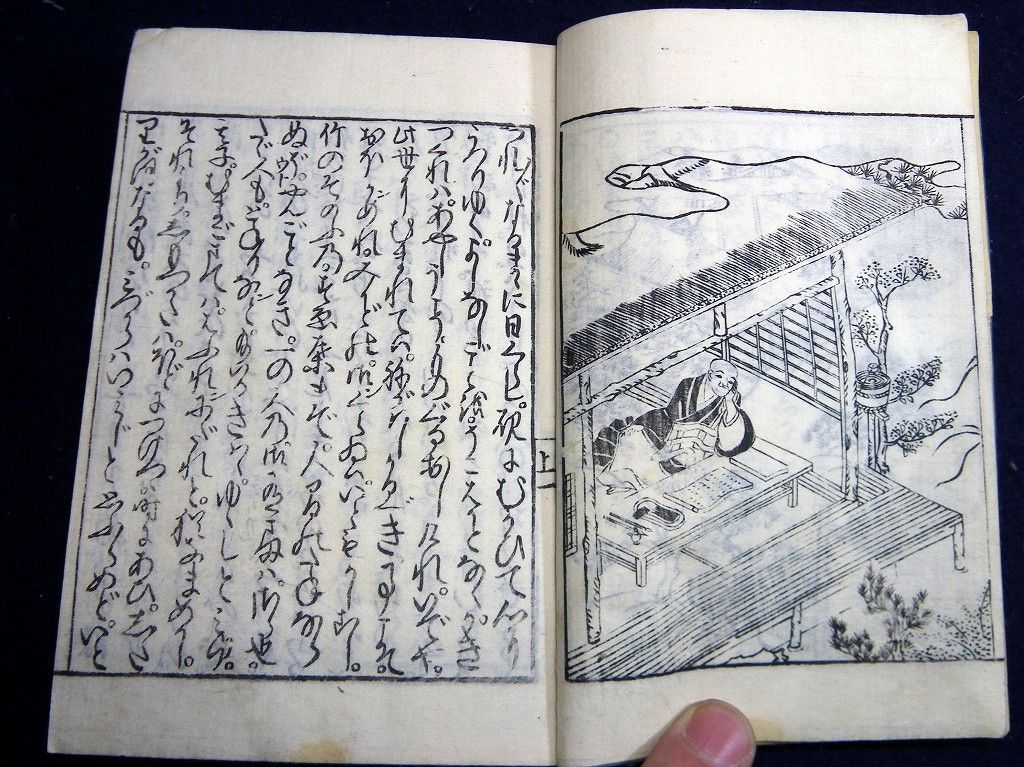 つれ〴〵なるまゝに日くらし。硯にむかひて心に
うつりゆく。よしなしごとを。そこはかとなくかき
つくれば。あやしうこそものぐるおしけれ。いでや。
此世にむまれては。ねがはしかるべき事こそ
おほかめれ。みかどの御くらゐはいともかしこし。
竹のそのふの末葉まで。人間のたねなら
ぬぞ。やんごとなき。一の人の御有さまは。さら也。
たゞ人も。とねりなど。給はるきはゝ。ゆゝしと見ゆ。
その子。むまごまでは。はふれにたれど。猶なまめかし。
それより下つかたは。ほどにつけつゝ。時にあひ。した
りがほなるも。みづからはいみじと思ふらめど。いと
上